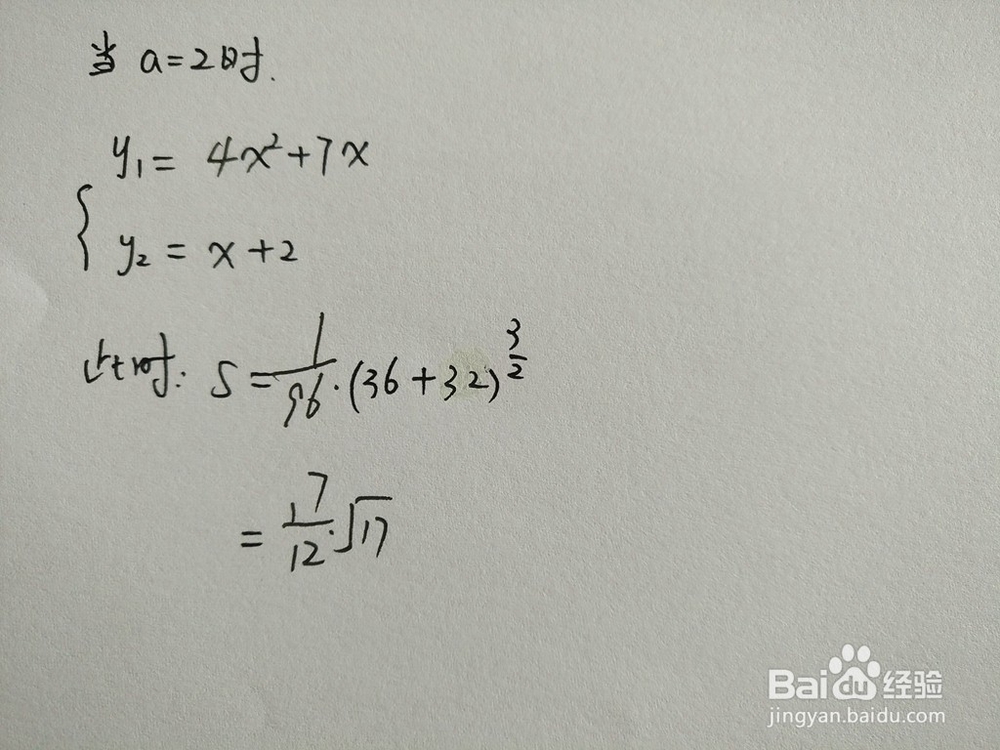 当 a=2时.
y₁= 4x²+7x
{ y₂ = x+2
此时: S = 1/96·(36+32)^(3/2)
= 17/12·√17
Baidu经验
jingyan.baidu.com